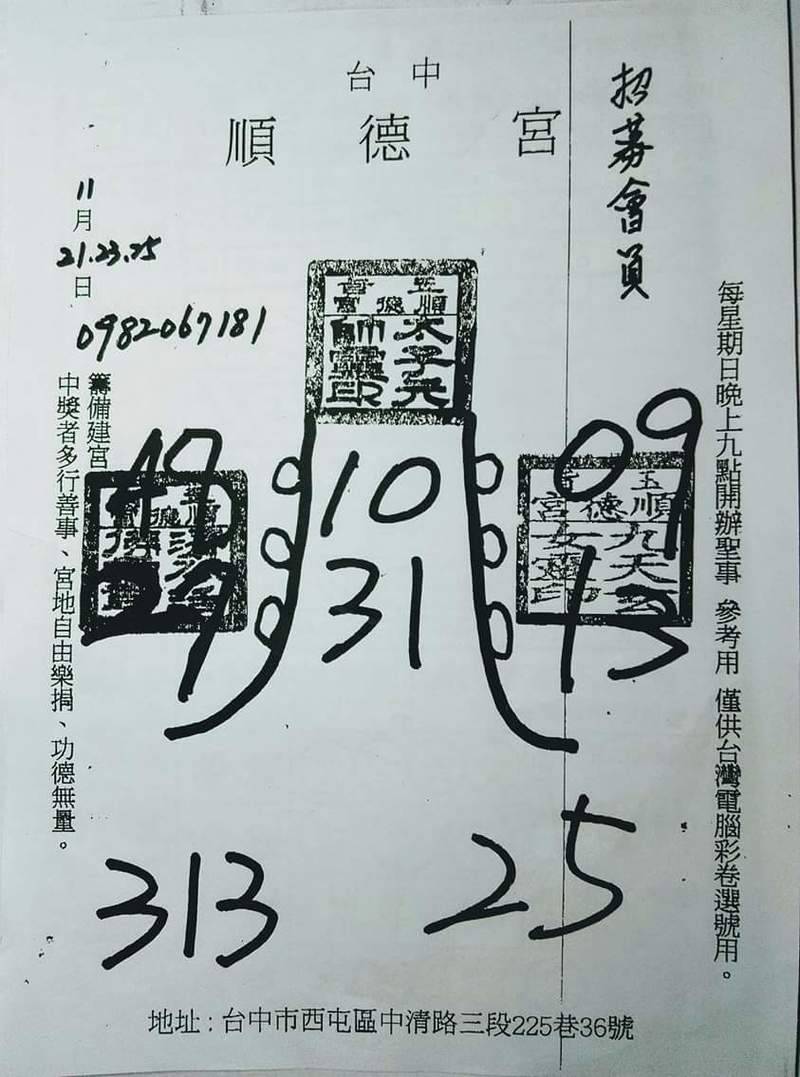 台中
順德宮
招募會員
每星期日晚上九點開辦聖事 參考用 僅供台灣電腦彩卷選號用。
11月21.23.25日
0982067181
籌備建宮
中獎者多行善事、宮地自由樂捐、功德無量。
順德宮
太子元
帥靈印
順德宮
九天玄
女靈印
10
31
09
13
49
29
313
25
地址:台中市西屯區中清路三段225巷36號